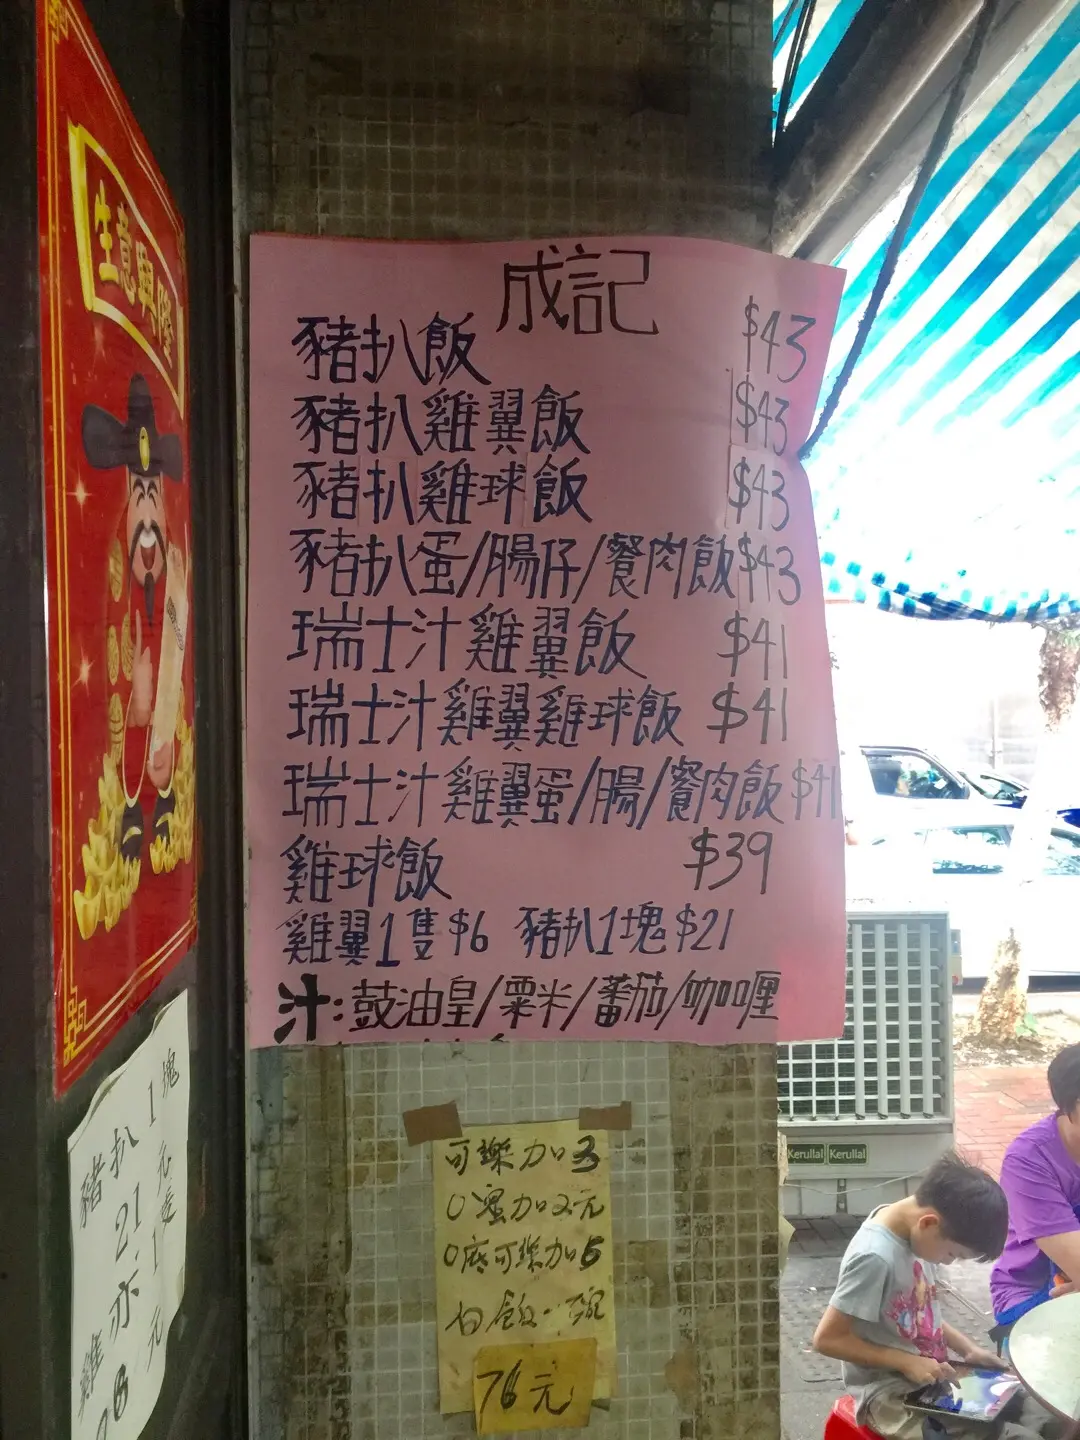 生意興隆
成記
豬扒飯 $43
豬扒雞翼飯 $43
豬扒雞球飯 $43
豬扒蛋/腸仔/餐肉飯 $43
瑞士汁雞翼飯 $41
瑞士汁雞翼雞球飯 $41
瑞士汁雞翼蛋/腸/餐肉飯 $41
雞球飯 $39
雞翼1隻$6 豬扒1塊$21
汁:鼓油皇/粟米/蕃茄/咖喱
豬扒1塊
21元
元
可樂加3
加2元
可樂加5
白飯一碗
Kerullal Kerullal